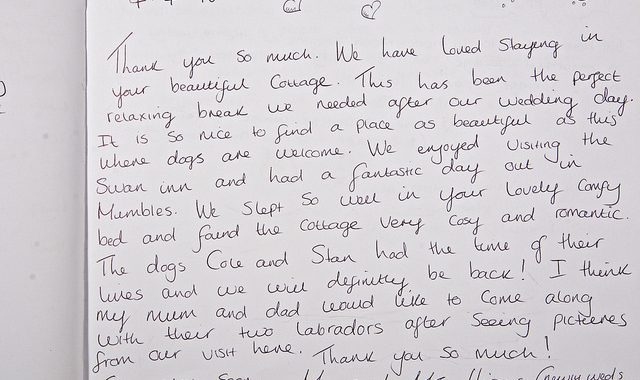 Thank you so much. We have loved staying in
your beautiful cottage. This has been the perfect
relaxing break we needed after our wedding day.
It is so nice to find a place as beautiful as this
where dogs are welcome. We enjoyed visiting the
Swan inn and had a fantastic day out in
Mumbles. We slept so well in your lovely comfy
bed and found the cottage very cosy and romantic.
The dogs Cole and Stan had the time of their
lives and we will definitley be back! I think
my mum and dad would like to come along
with their two labradors after seeing pictures
from our visit here. Thank you so much!